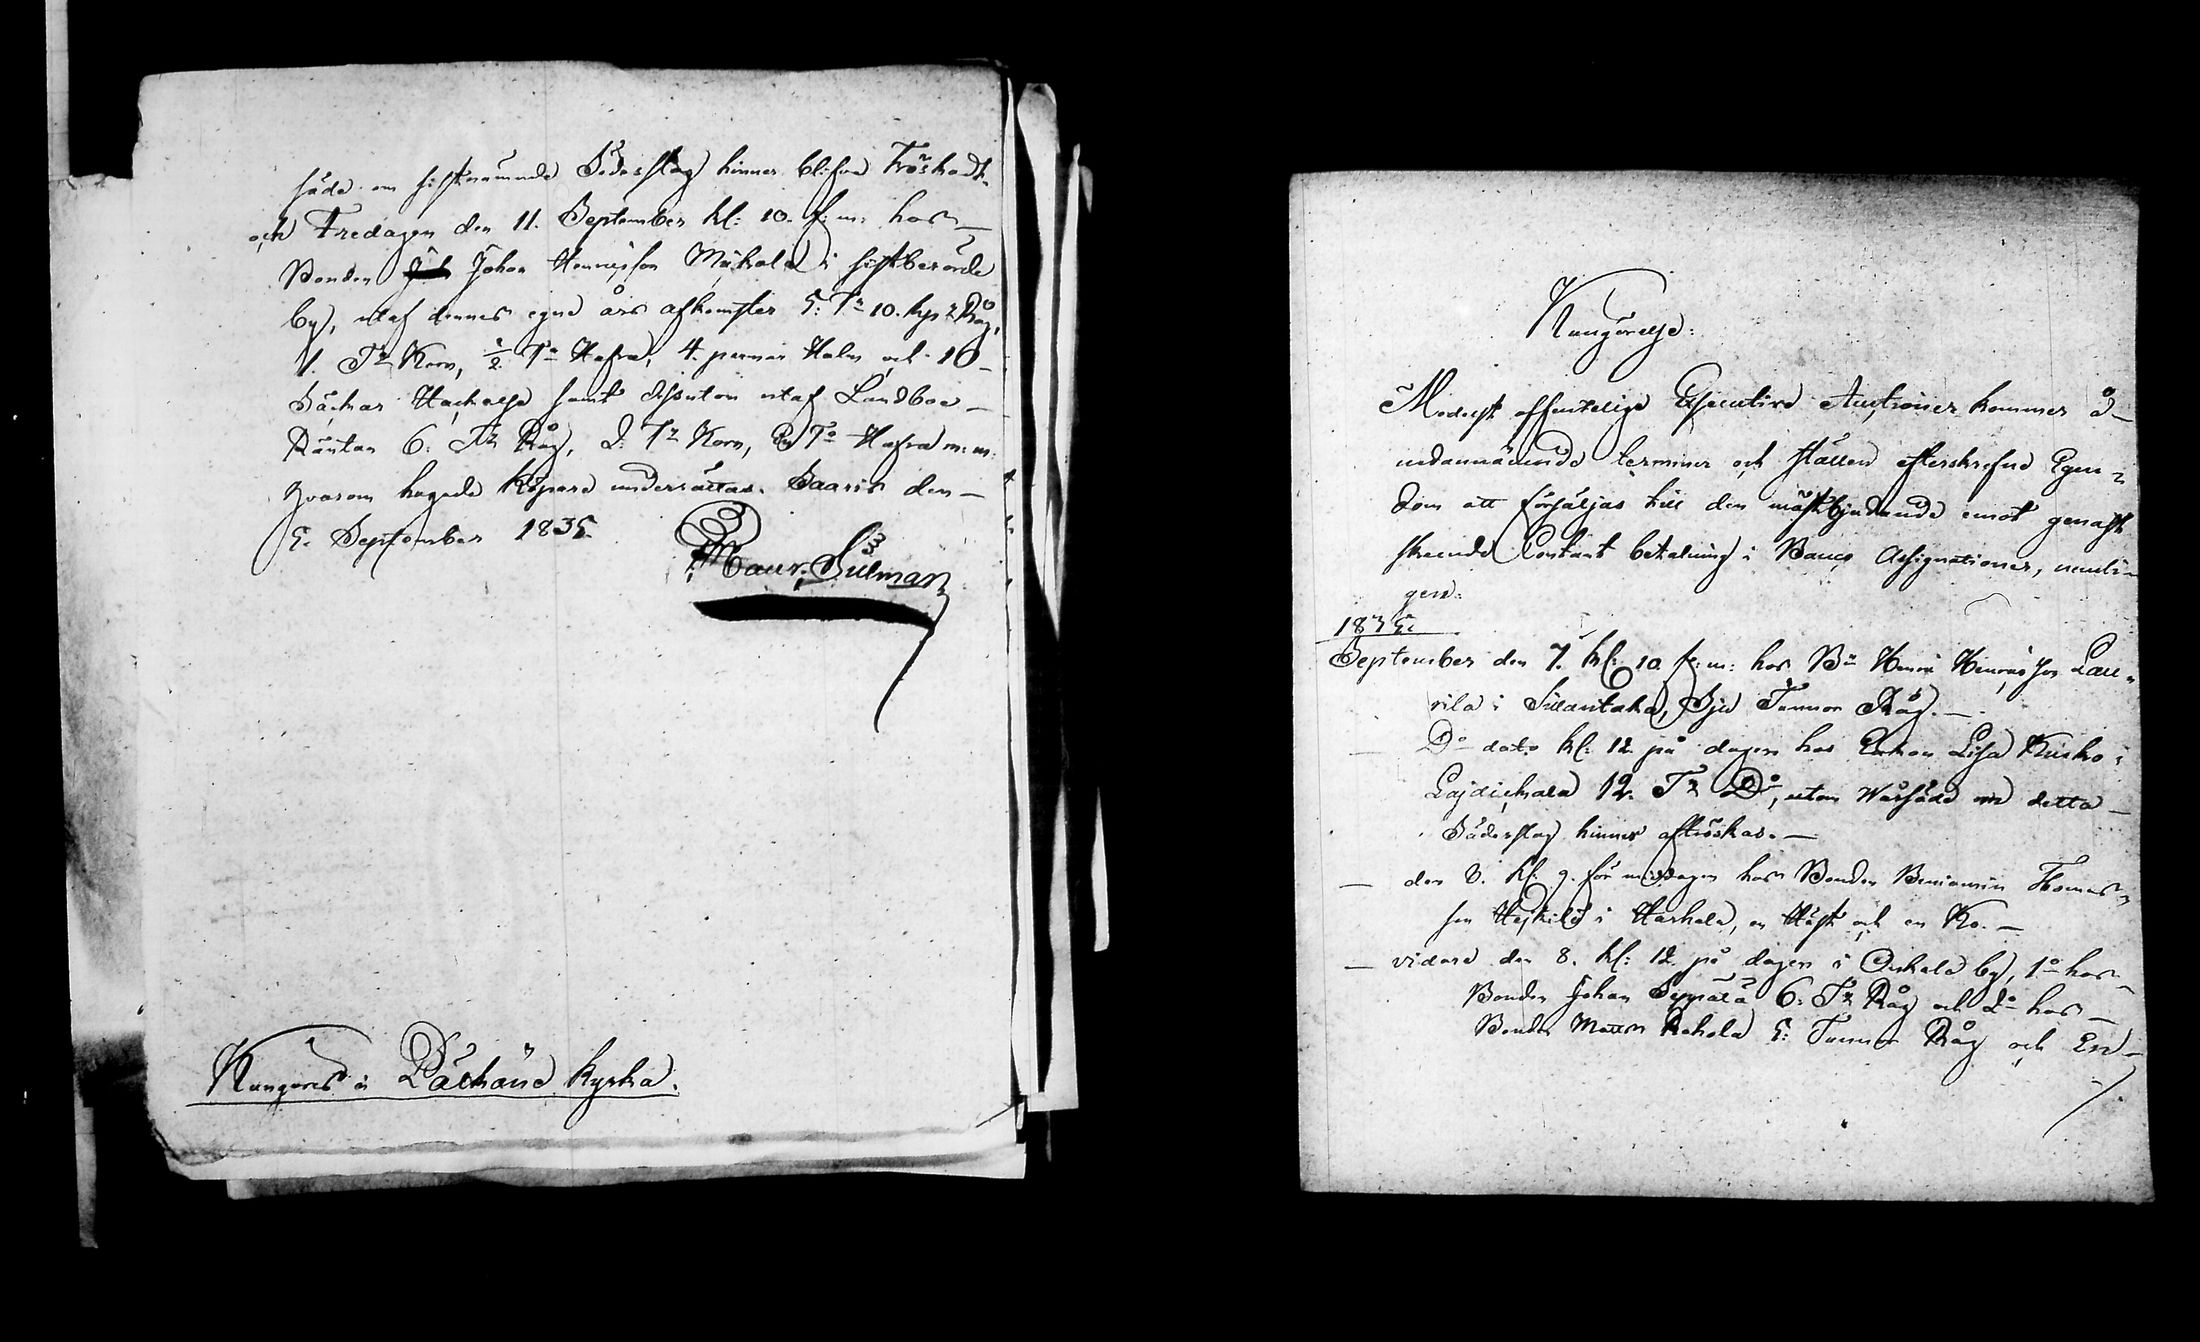 såde om sistnämnde Sädesslag hinner blifva Tröskadt.
och Fredagen den 11. September kl: 10. f: m: hos
Bonden Johan Henricsson Mickola i sistberörde
by, utaf dennes egne års afkomster 5: Tr 10. kpr Råg,
1. Tr Korn, 1/2 Ta Hafra, 4. parmar Halm och 10
Säckar Hackelse samt dessutom utaf Landboe
Räntan 6. Tr Råg, 2: Tr Korn, Ta Hafra m: m:
hvarom hugade Köpare underrättas. Saaris den
5. September 1835.
Maur. Silman
Kungöres i Pälkäne kyrka.
Kungörelse:
Medelst offentelige Executive Auctioner kommer å
nedannämnde terminer och ställen efterskrefne Egen
dom att försäljas till den mästbjudande emot genast
skeende Contant betalning i Banco Assignationer, nemli
gen:
1835.
September den 7. kl: 10 f: m: hos Bn Henric Henricsson Lau
rila i Sillantaka, Sju Tunnor Råg.
Do dato kl: 12 på dagen hos Enkan Lisa Kusko i
Laidickala 12. Tr Do, utom Vårsäde om detta
Sädesslag hinner aftröskas.
den 8. kl: 9. för middagen hos Bonden Beniamin Thomas
son Heickilä i Harhala, en Häst och en Ko.
vidare den 8. kl: 12 på dagen i Onkala by, 1o hos
Bonden Johan Seppälä 6. Tr Råg och 2o hos
Bonden Matts Rekola 5: Tunnor Råg och En